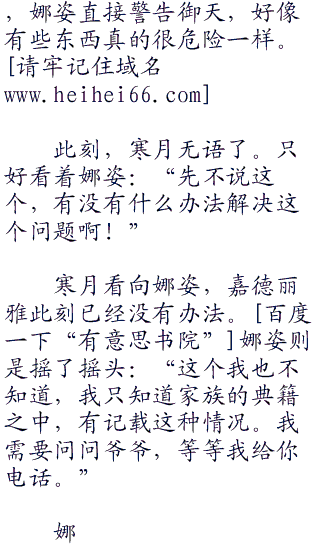 ，娜姿直接警告御天，好像
有些东西真的很危险一样。
[请牢记住域名
www.heihei66.com]
此刻，寒月无语了。只
好看着娜姿：“先不说这
个，有没有什么办法解决这
个问题啊！”
寒月看向娜姿，嘉德丽
雅此刻已经没有办法。[百度
一下“有意思书院”]娜姿则
是摇了摇头：“这个我也不
知道，我只知道家族的典籍
之中，有记载这种情况。我
需要问问爷爷，等等我给你
电话。”
娜